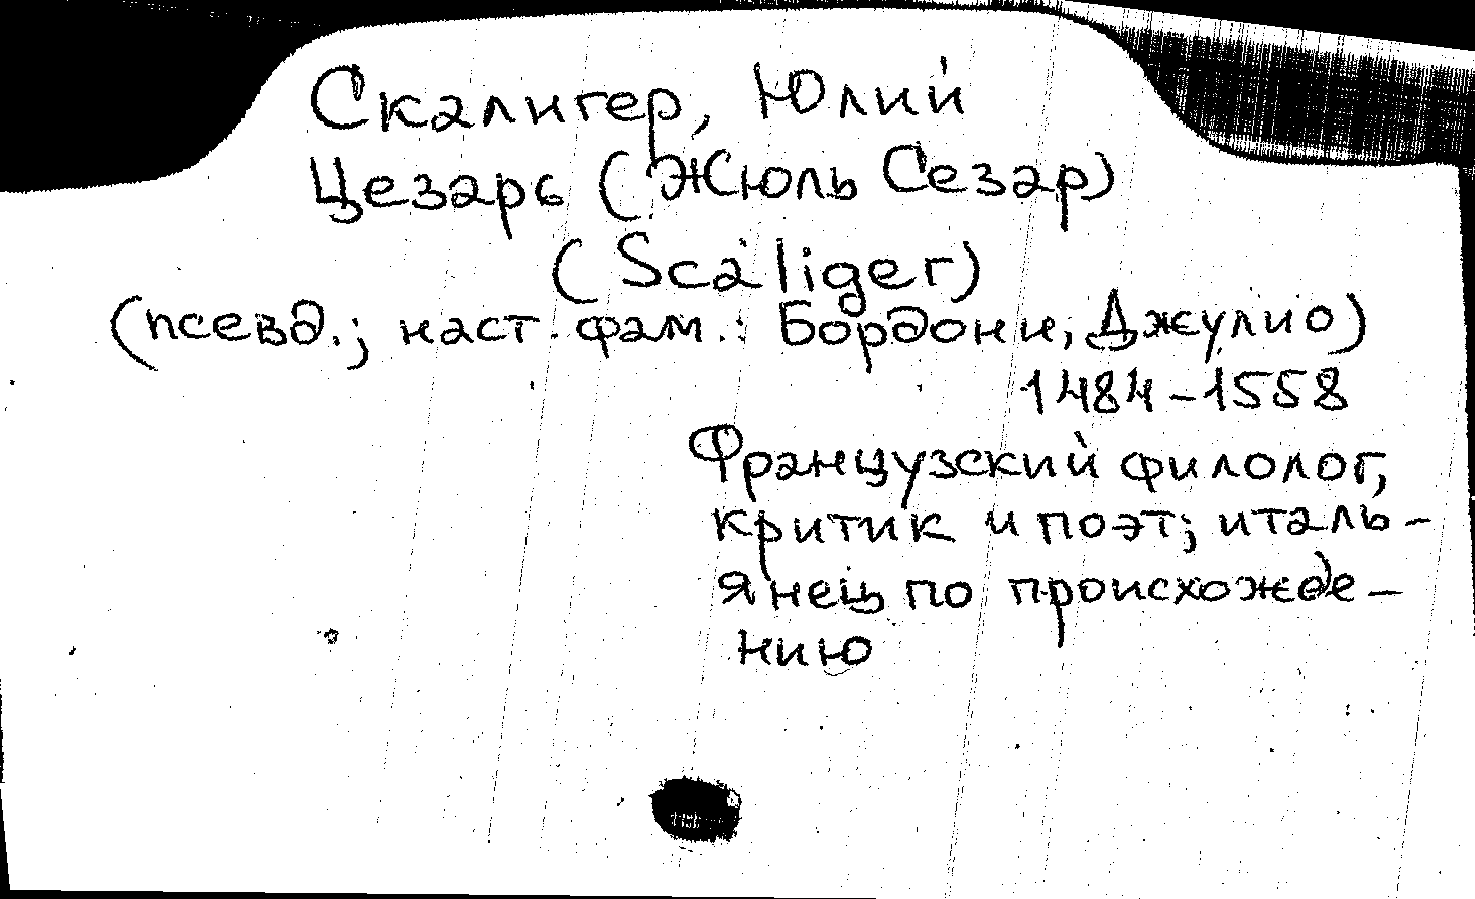 Скалигер, Юлий
Цезарь (Жюль Сезар)
(Scaliger)
(псевд.; наст. фам.: Бордони, Джулио)
1484-1558
Французский филолог,
критик и поэт; италь-
янец по происхожде-
нию